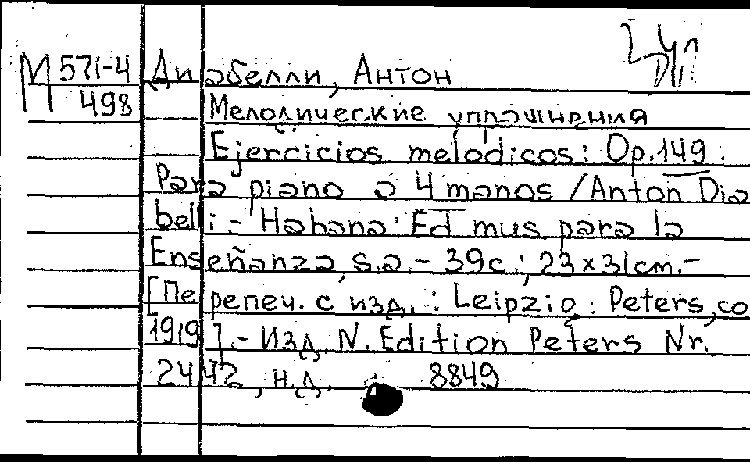 М 571-4
498
Диабелли, Антон
Мелодические упражнения
Ejercicios melodicos: Op.149:
Para piano a 4 manos / Anton Dia
belli - Habana: Ed mus para la
Enseñanza, s.a. - 39c.; 23x31cm.-
[Перепеч. с изд.: Leipzig: Peters, co
1919]. - Изд. N. Edition Peters Nr.
2442, н.д. : 8849